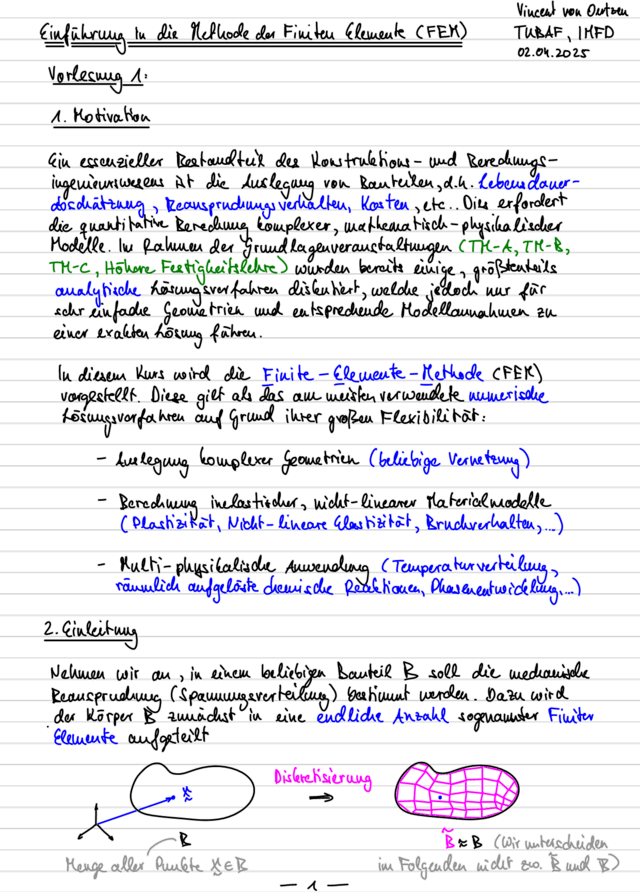 Einführung in die Methode der Finiten Elemente (FEM)
Vincent von Oertzen
TUBAF, IMFD
02.04.2025
Vorlesung 1:
1. Motivation
Ein essenzieller Bestandteil des Konstruktions- und Berechnungs-
ingenieurswesens ist die Auslegung von Bauteilen, d.h. Lebensdauer-
abschätzung, Beanspruchungsverhalten, Kosten, etc.. Dies erfordert
die quantitative Berechnung komplexer, mathematisch-physikalischer
Modelle. Im Rahmen der Grundlagenveranstaltungen (TM-A, TM-B,
TM-C, Höhere Festigkeitslehre) wurden bereits einige, größtenteils
analytische Lösungsverfahren diskutiert, welche jedoch nur für
sehr einfache Geometrien und entsprechende Modellannahmen zu
einer exakten Lösung führen.
In diesem Kurs wird die Finite-Elemente-Methode (FEM)
vorgestellt. Diese gilt als das am meisten verwendete numerische
Lösungsverfahren auf Grund ihrer großen Flexibilität:
- Auslegung komplexer Geometrien (beliebige Vernetzung)
- Berechnung inelastischer, nicht-linearer Materialmodelle
(Plastizität, Nicht-lineare Elastizität, Bruchverhalten,...)
- Multi-physikalische Anwendung (Temperaturverteilung,
räumlich aufgelöste chemische Reaktionen, Phasenentwicklung,...)
2. Einleitung
Nehmen wir an, in einem beliebigen Bauteil B soll die mechanische
Beanspruchung (Spannungsverteilung) bestimmt werden. Dazu wird
der Körper B zunächst in eine endliche Anzahl sogenannter Finiter
Elemente aufgeteilt
x Diskretisierung
→
B
B̃ ≈ B (Wir unterscheiden
Menge aller Punkte x ∈ B
im Folgenden nicht zw. B̃ und B)
- 1 -